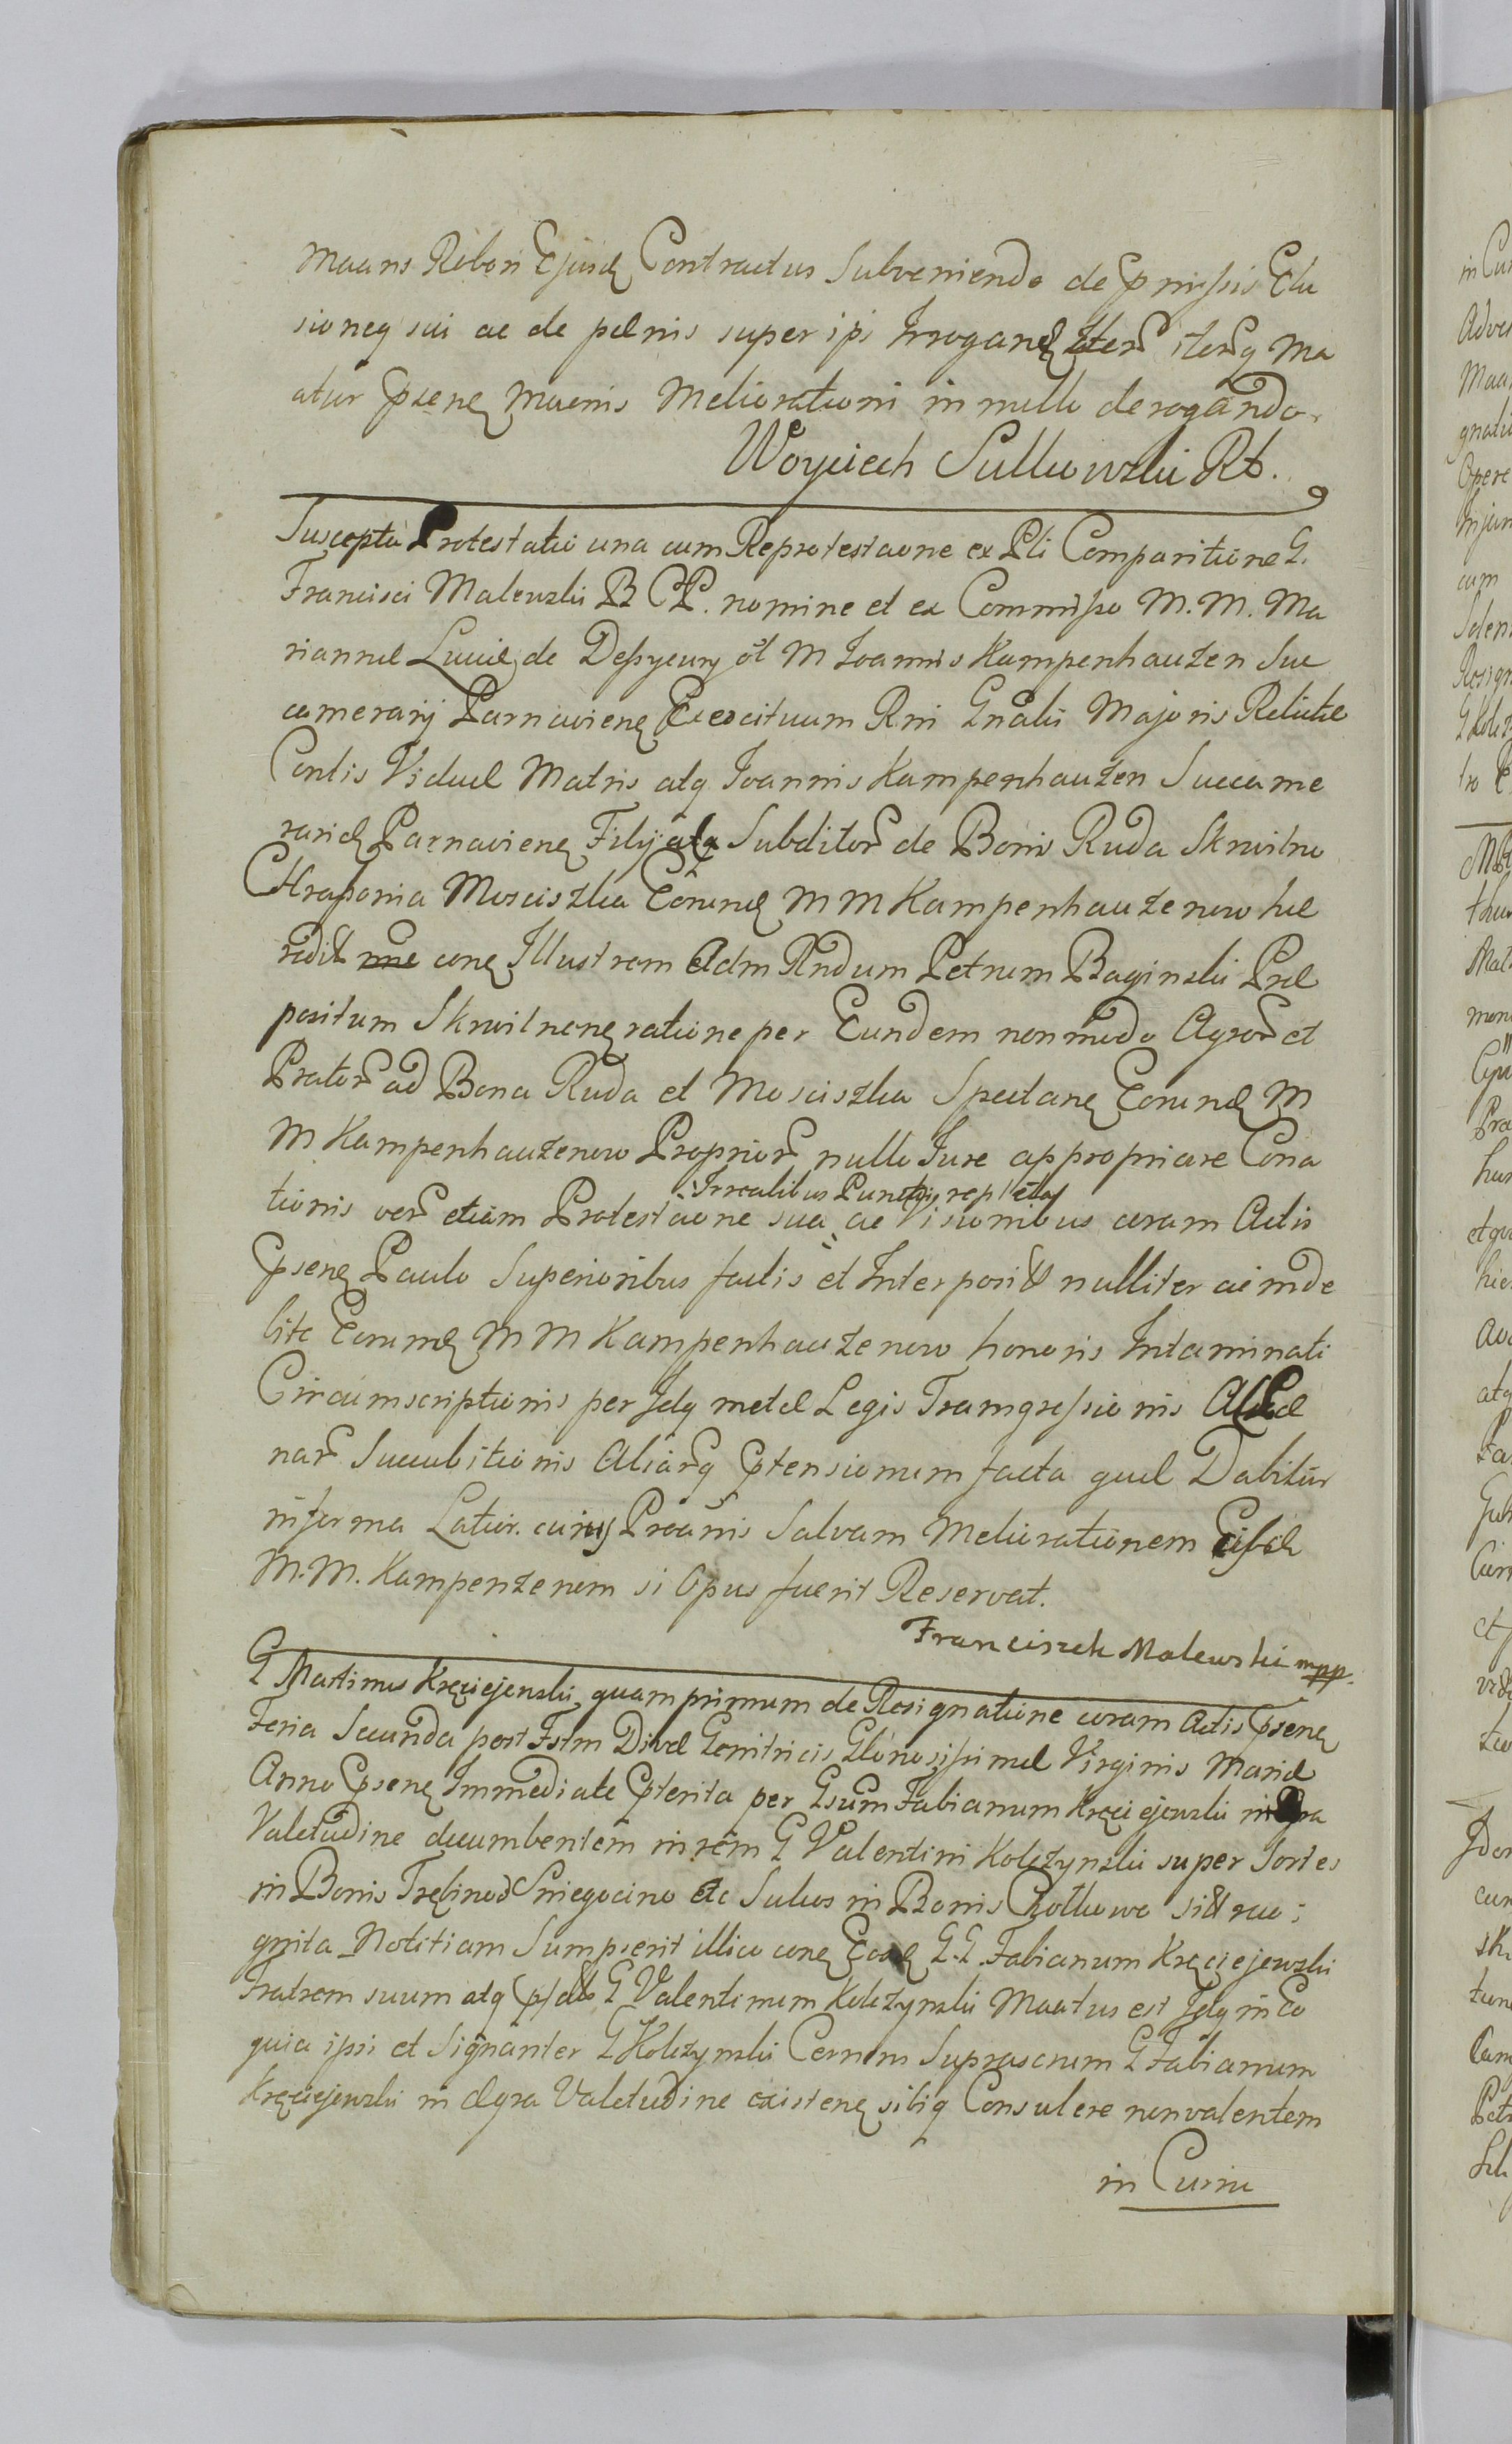 Maans Robori Ejusd Contractus Subveniendo de Pmissis Elu
sioneq sui ac de paenis super ipš Irrogand Iterũ iterũq Ma
atur Psenę Maenis Meliorationi in nullo derogando.
Woyciech Sullkowski Rt.
Suscepta Protestatio una cum Reprotestaone ex Pli Comparitione G.
Francisci Malewski B C P. nomine et ex Commisso M. M. Ma
riannae Luciae de Despeury ol M Joannis Kampenhauzen Suc
camerarij Parnaviens Exercituum Rni Gnalis Majoris Relictae
Contis Viduae Matris atq Joannis Kampenhauzen Succame
rarid Parnaviene Filij atq Subditor de Bonis Ruda Skrwilno
Chraponia Mosciska Eorund M M Kampenhauzenow hae
redit cone Illustrem Adm Rndum Petrum Baginski Prae
positum Skrwilnens ratione per Eundem non modo Agror et
Prator ad Bona Ruda et Mosciska Spectane Eorund M
M Kampenhauzenow Proprior nullo Jure appropriare Cona
Irrealibus Punctis repletas
tionis ver etiam Protestaone sua ac Visionibus coram Actis
Psenę Paulo Superioribus factis et Interposit nulliter ac inde
bite Eorumd M M Kampenhauzenow honoris Intaminati
Circumscriptionis per Idq metae Legis Transgressionis
nar Succubitionis Aliarq Ptensionum facta quae Dabitur
in forma Latior. cujus Proanis Salvam Meliorationem Eisd
M. M. Kampenzenom si Opus fuerit Reservat.
Franciszek Malewski mpp.
G Martinus Kręciejewski quam primum de Resignatione coram Actis Psenę
Feria Secunda post Fstm Divae Genitricis Gloriosissimae Virginis Mariae
Anno Psenę Immediate Pterita per Gsum Fabianum Kręciejewski in
Valetudine decumbentem in rem G Valentini Kolczynski super Sortes
in Bonis Trębino Sniegocino Ac Sulus in Bonis Chotkowo sit reco
gnita Notitiam Sumpserit illico cone Eosd G. G. Fabianum Kręciejewski
Fratrem suum atq G Valentinum Kolczynski Maatus est Idq in Eo
quia ipsi et Signanter G Kolczynski Cernens Suprascrum G Fabianum
Kręciejewski in aegra Valetudine existene sibiq Consulere non valentem
in Curia